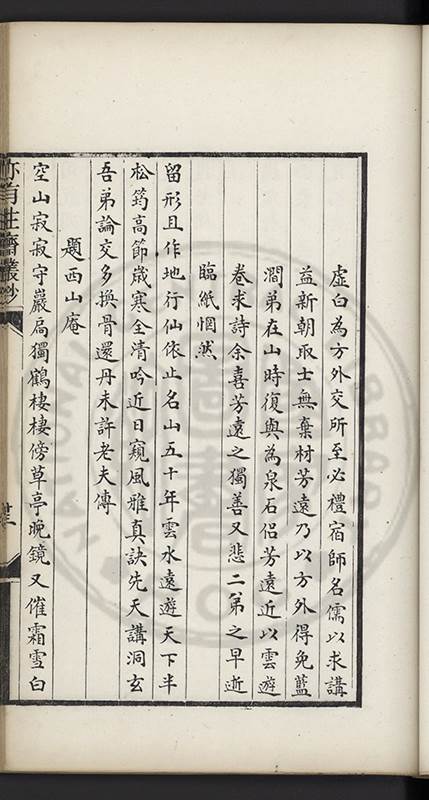 虛白為方外交所至必禮宿師名儒以求講
益新朝取士無棄材芳遠乃以方外得免藍
澗弟在山時復與為泉石侶芳遠近以雲遊
卷求詩余喜芳遠之獨善又悲二弟之早逝
臨紙惘然
留形且作地行仙依止名山五十年雲水遠遊天下半
松筠高節歲寒全清吟近日窺風雅真訣先天講洞玄
吾弟論交多換骨還丹未許老夫傳
題西山庵
空山寂寂守巖扃獨鶴棲棲傍草亭晚鏡又催霜雪白
亦有生齋叢鈔